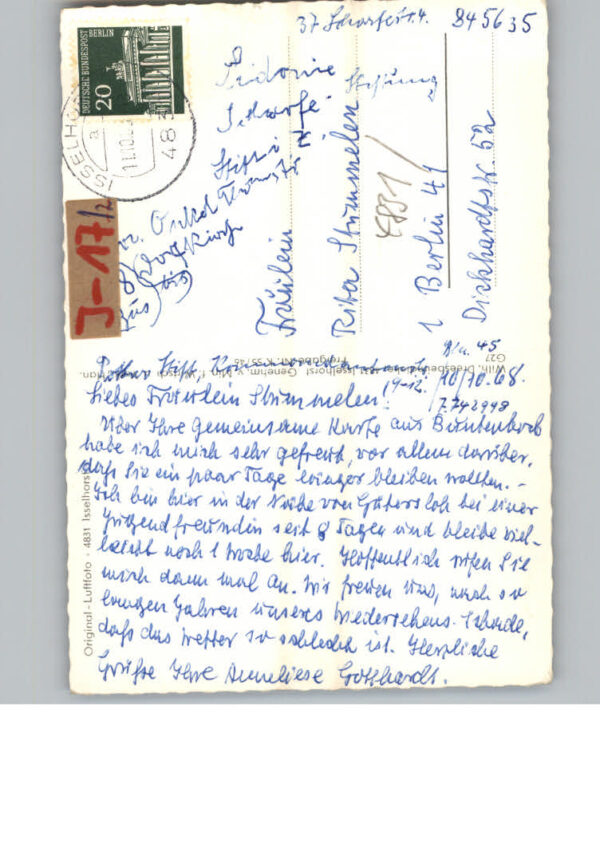 37 Scharfestr. 4. 845635
DEUTSCHE BUNDESPOST BERLIN
20
ISSELHORST
483
J-17/2
Sidonie
Scharfe
Stiftung
Fräulein
Rita Stummelen
4831
1 Berlin 41
Dickhardtstr. 52
G27
Wilh. Driesbeimer, 4831 Isselhorst Genehm. v.
Freigabe Nr. K 55/46
10/10.68.
(9-12.
7742998
Liebes Fräulein Stummelen!
Über Ihre gemeinsame Karte aus Buntenbock
habe ich mich sehr gefreut, vor allem darüber,
daß Sie ein paar Tage länger bleiben wollten. -
Ich bin hier in der Nähe von Gütersloh bei einer
Jugendfreundin seit 8 Tagen und bleibe viel-
leicht noch 1 Woche hier. Hoffentlich rufen Sie
mich dann mal an. Wir freuen uns, nach so
langen Jahren unseres Wiedersehens. Schade,
daß das Wetter so schlecht ist. Herzliche
Grüße Ihre Anneliese Gotthardt.
Original-Luftfoto · 4831 Isselhorst